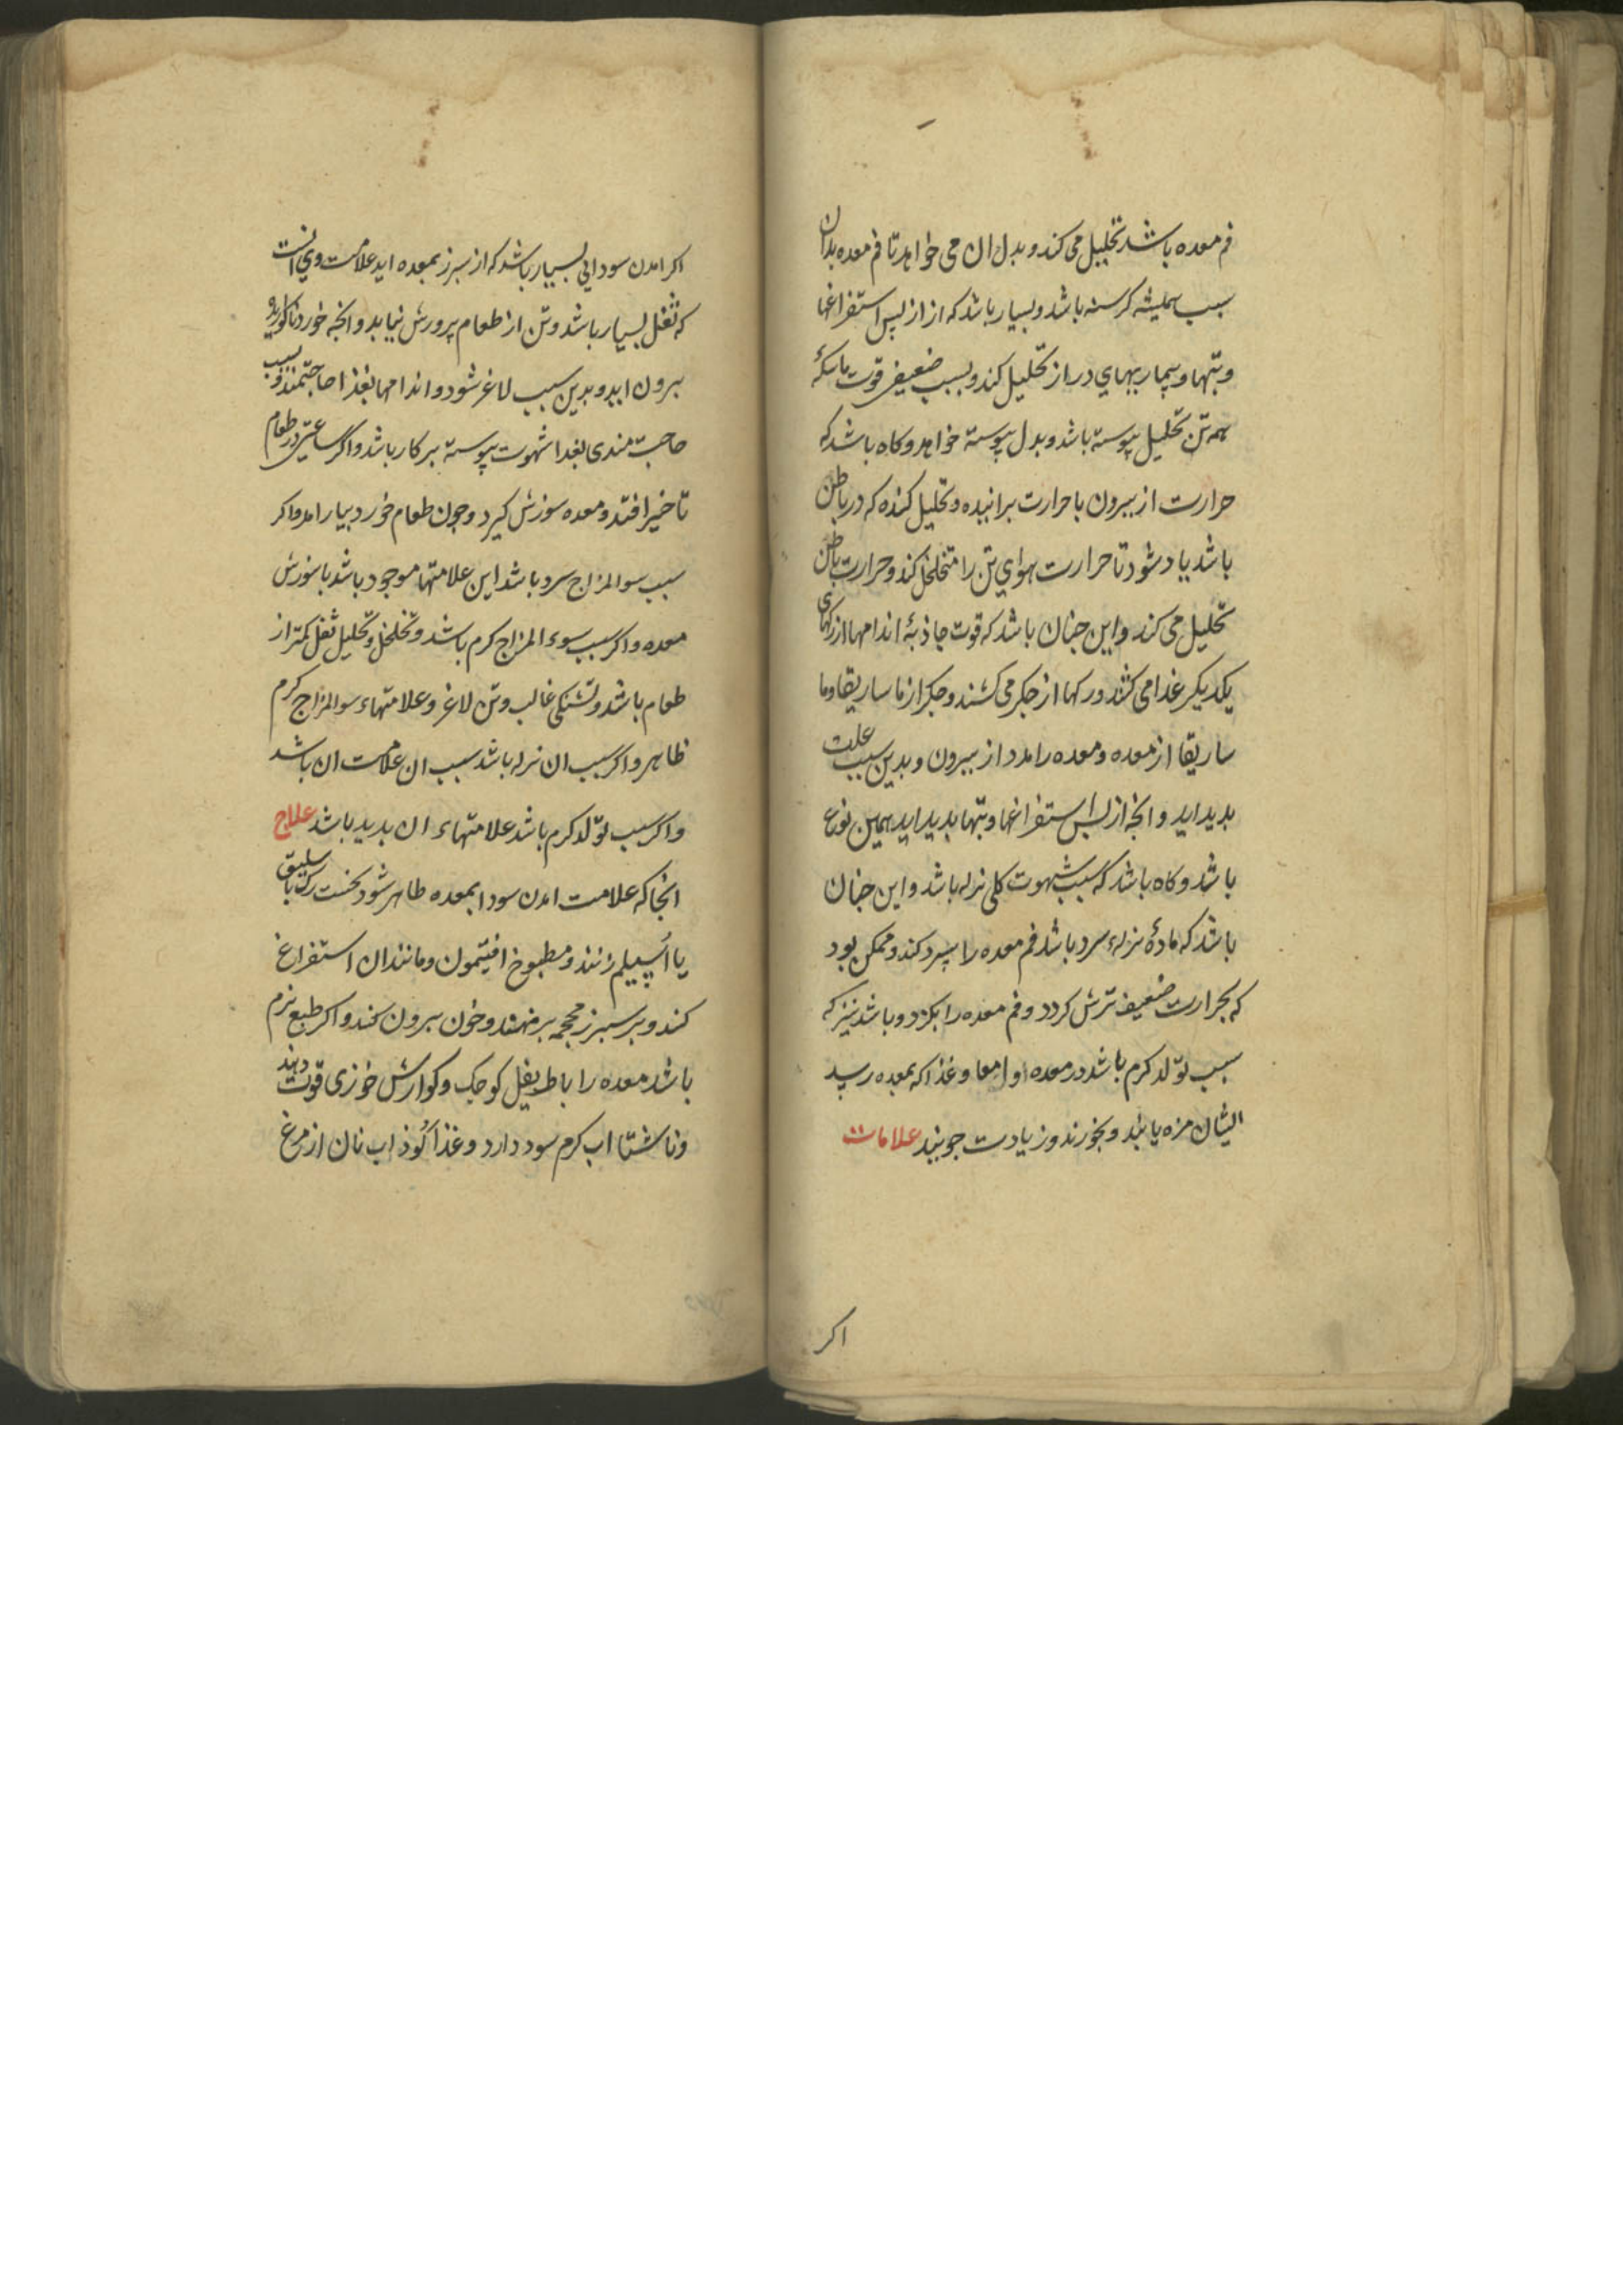 فم معده باشد تحلیل می کند و بدل ان می خواهد تا فم معده بدان
سبب همیشه کرسنه باشد و بسیار باشد که از از پس استفراغها
و تبها و بیماریهای دراز تحلیل کند و بسبب ضعیفی قوت ماسکهٔ
همه تن تحلیل پیوسته باشد و بدل پیوسته خواهد و کاه باشد که
حرارت از بیرون با حرارت براننده و تحلیل کننده که در باطن
باشد یاد شود تا حرارت هوای تن را متخلخل کند و حرارت باطن
تحلیل می کند و این جنان باشد که قوت جاذبهٔ اندامها از رکهای
یکدیکر غذا می کشد و رکها از جکر می کشند و جکر از ماساریقا و ما
ساریقا از معده و معده را مدد از بیرون و بدین سبب علت
بدید اید و انجه از پس استفراغها و تبها بدید اید همین نوع
باشد و کاه باشد که سبب شهوت کلی نزله باشد و این جنان
باشد که مادهٔ نزلهء سرد باشد فم معده را سرد کند و ممکن بود
که بحرارت ضعیف ترش کردد و فم معده را بکزد و باشد نیز که
سبب تولّد کرم باشد در معده او امعا و غذا که بمعده رسد
ایشان مزه یابند و بخورند و زیادت جویند علامات
اکر
اکر امدن سودایی بسیار باشد که از سبرز بمعده اید علامت وی انست
که ثفل بسیار باشد و تن از طعام پرورش نیابد و انجه خورد ناکوارده
بیرون اید و بدین سبب لاغر شود و اندامها بغذا حاجتمند و بسبب
حاجت مندی بغدا شهوت پیوسته بر کار باشد و اکر ساعتی در طعام
تاخیر افتد و معده سوزش کیرد و جون طعام خورد بیارامد و اکر
سبب سوالمزاج سرد باشد این علامتها موجود باشد با سوزش
معده و اکر سبب سوء المزاج کرم باشد و تخلخل و تحلیل ثفل کمتر از
طعام باشد و تشنکی غالب و تن لاغر و علامتهاء سوالمزاج کرم
ظاهر و اکر سبب ان نزله باشد سبب ان علامت ان باشد
و اکر سبب تولّد کرم باشد علامتهاء ان بدید باشد علاج
انجا که علامت امدن سودا بمعده طاهر شود نخست رک باسلیق
یا اسیلم زنند و مطبوخ افتیمون و مانند ان استفراغ
کند و بر سبرز محجمه برنهند و خون بیرون کنند و اکر طبع نرم
باشد معده را باطریفل کوجک و کوارش خوزی قوت دهند
و ناشتا اب کرم سود دارد و غذا کوذاب نان از مرغ